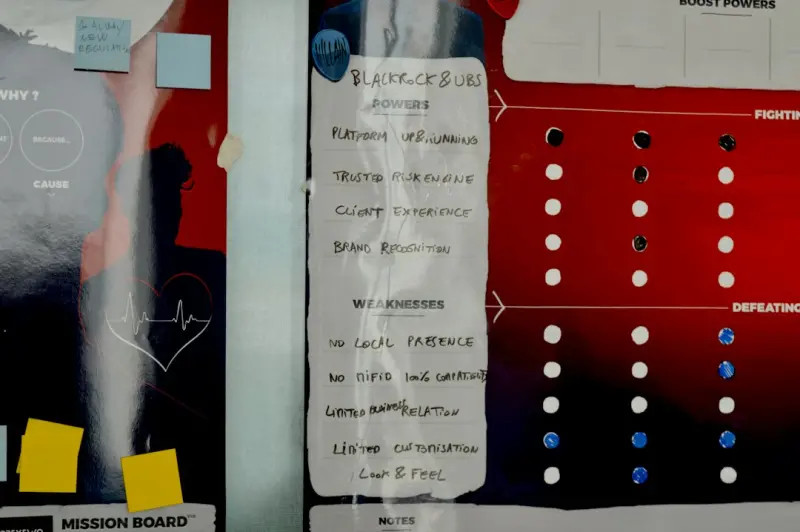 NEW
REGULATI
WHY ?
BECAUSE...
CAUSE
MISSION BOARD
VILLAIN
BLACKROCK & UBS
POWERS
PLATFORM UP & RUNNING
TRUSTED RISK ENGINE
CLIENT EXPERIENCE
BRAND RECOGNITION
WEAKNESSES
NO LOCAL PRESENCE
NO MIFID 100% COMPATIBLE
LIMITED BUSINESS RELATION
LIMITED CUSTOMISATION
LOOK & FEEL
NOTES
BOOST POWERS
FIGHTIN
DEFEATING